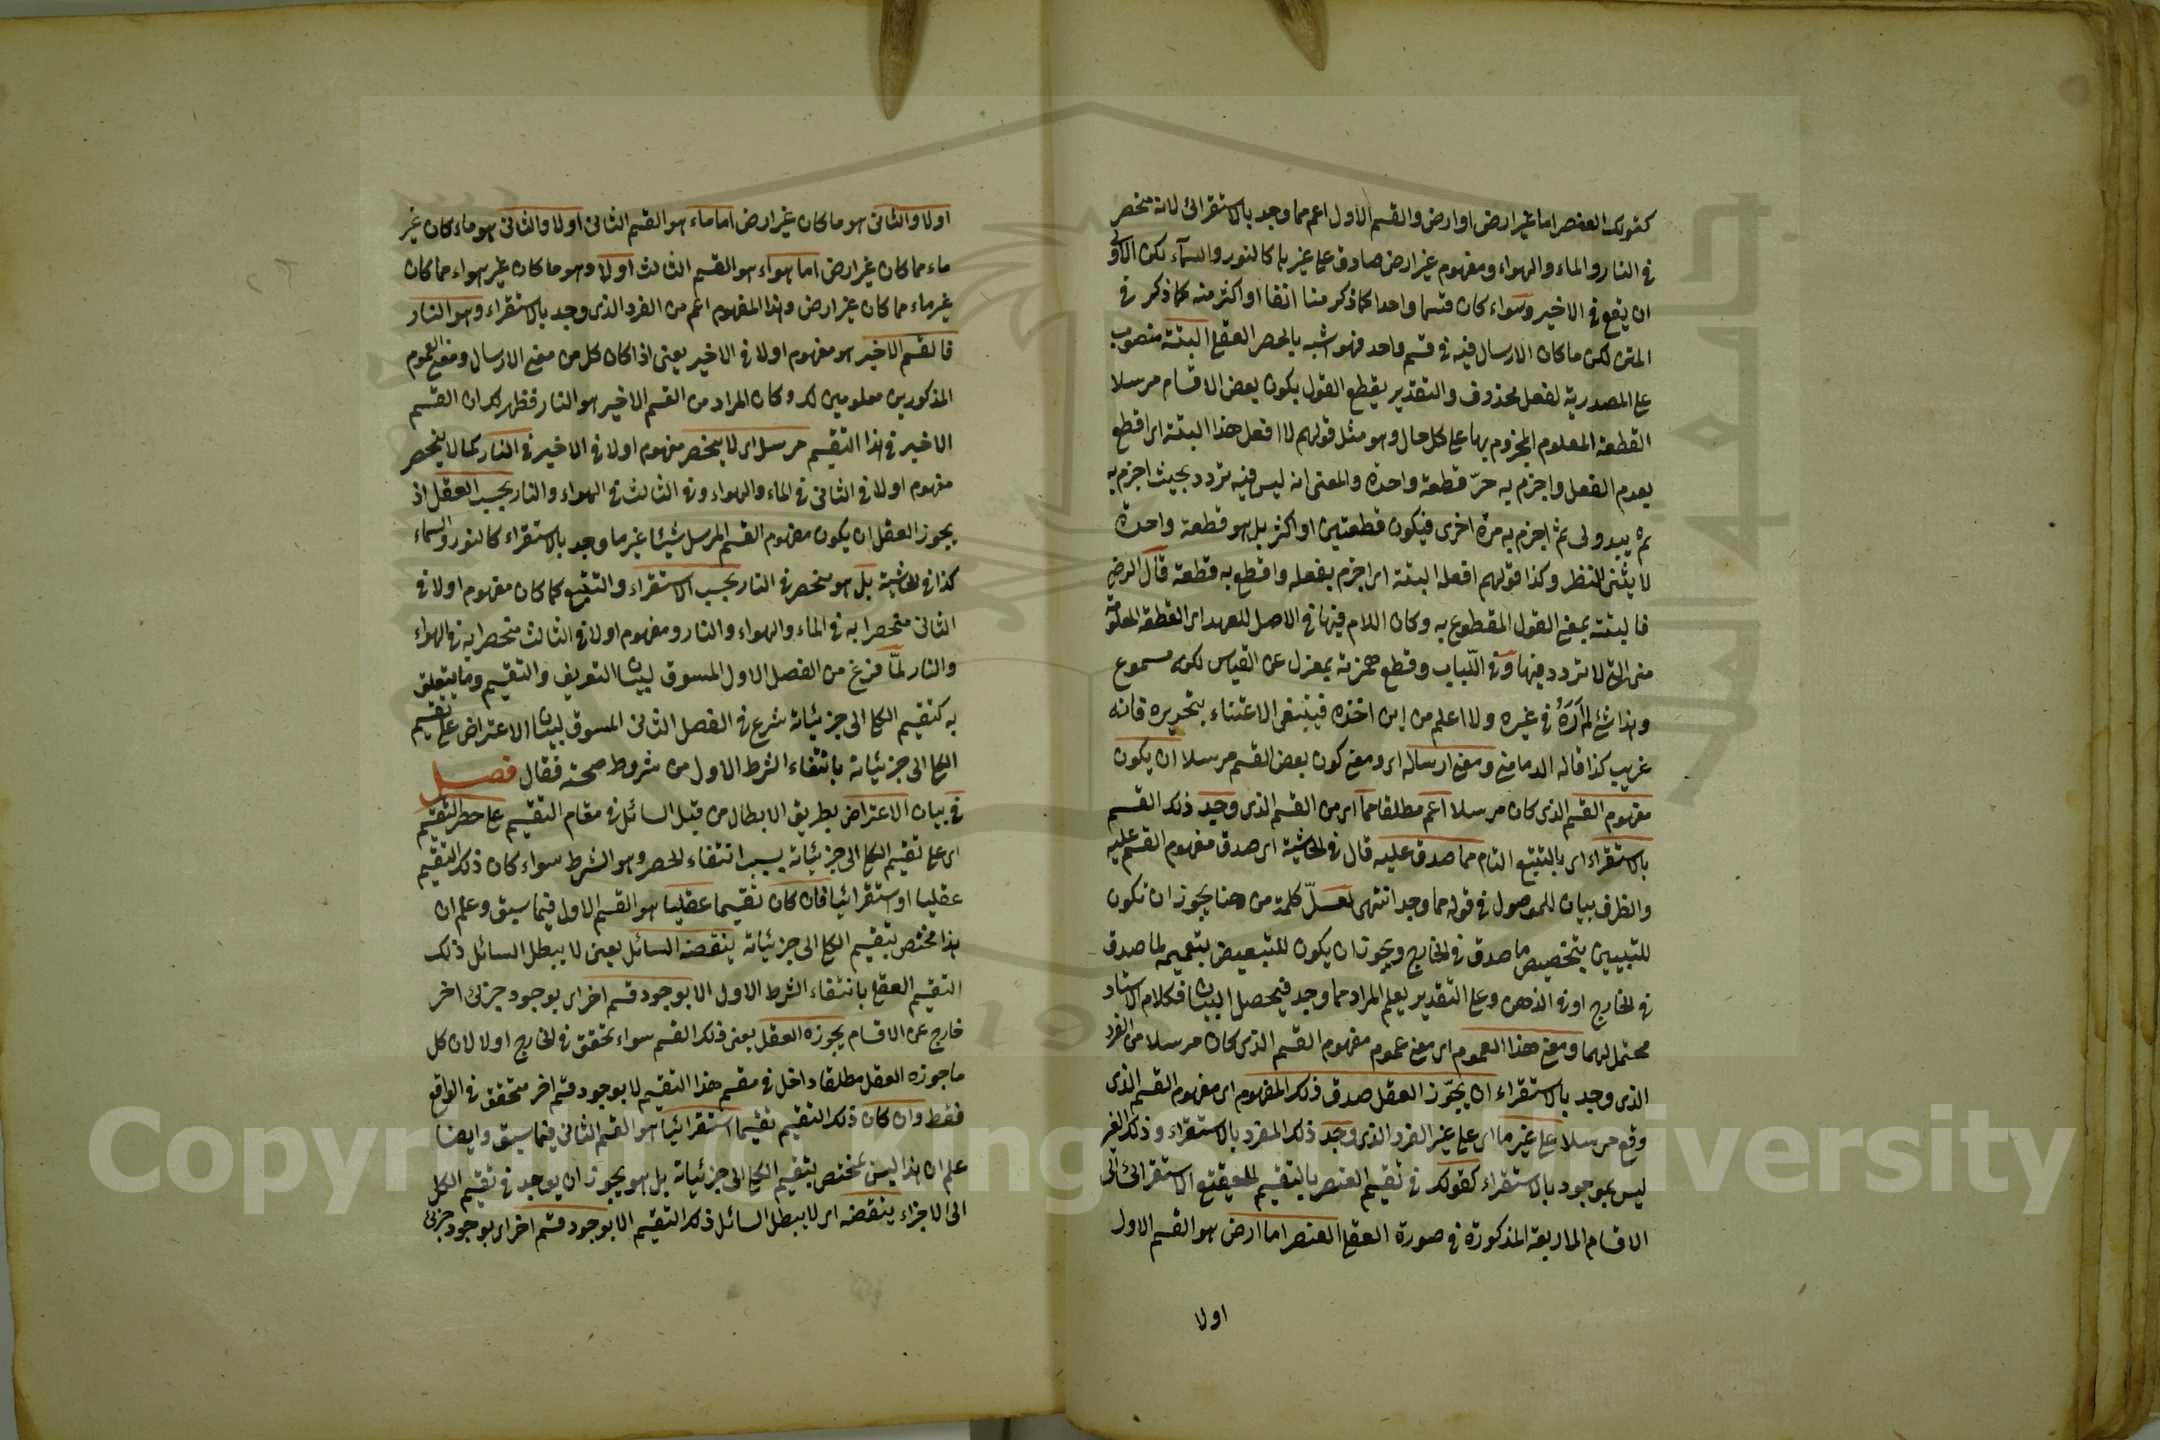 كقولك العنصر اما غير ارض او ارض والقسم الاول اعم مما وجد بالاستقرائى لانه منحصر
فى النار والماء والهواء ومفهوم غير ارض صادق على غيرها كالنور والسماء لكن الاولى
ان يقع فى الاخير وسواء كان قسما واحدا كما ذكر منا انفا او اكثر منه كما ذكر فى
المتن لكن ما كان الارسال فيه فى قسم واحد فهو اشبه بالحصر العقلى البتة منصوب
على المصدرية لفعل محذوف والتقدير يقطع القول بكون بعض الاقسام مرسلا
القطعة المعلوم الجزوم بها على كل حال وهو مثل قولهم لا افعل هذا البتة اى اقطع
بعدم الفعل واجزم به جزم قطعة واحدة والمعنى انه ليس فيه تردد بحيث اجزم به
ثم يبدو لى ثم اجزم به مرة اخرى فيكون قطعتين او اكثر بل هو قطعة واحدة
لا يثنى النظر وكذا قولهم افعله البتة اى اجزم بفعله واقطع به قطعة قال الرضى
فالبتة بمعنى القول المقطوع به وكان اللام فيها فى الاصل للعهد اى القطعة المعلومة
منى التى لا تردد فيها وفى اللباب وقطع همزته بمعزل عن القياس لكنه مسموع
وهذا شئ لم أره فى غيره ولا اعلم من اين اخذه فينبغى الاعتناء بتحريره فانه
غريب كذا قاله الدمامينى ومعنى ارساله اى ومعنى كون بعض القسم مرسلا ان يكون
مفهوم القسم الذى كان مرسلا اعم مطلقا مما اى من القسم الذى وجد ذلك القسم
بالاستقراء اى بالتتبع التام مما صدق عليه قال فى الحاشية اى صدق مفهوم القسم عليه
والظرف بيان للموصول فى قوله مما وجد انتهى لعل كلمة من هنا يجوز ان تكون
للتبيين بتخصيص ما صدق فى الخارج ويجوز ان يكون للتبعيض بتعميم لما صدق
فى الخارج او فى الذهن وعلى التقدير يعلم المراد مما وجد فيحصل البيان فكلام الاستاد
محتمل لهما ومعنى هذا العموم اى معنى عموم مفهوم القسم الذى كان مرسلا من الفرد
الذى وجد بالاستقراء ان يجوز العقل صدق ذلك المفهوم اى مفهوم القسم الذى
وقع مرسلا على غير ما اى على غير الفرد الذى وجد ذلك المفرد بالاستقراء وذلك الغير
ليس بموجود بالاستقراء كقولك فى تقسيم العنصر بالتقسيم الحقيقى الاستقرائى الى
الاقسام الاربعة المذكورة فى صورة العقلى العنصر اما ارض هو القسم الاول
اولا
اولا والثانى هو ما كان غير ارض اما ماء هو القسم الثانى اولا والثانى هو ماء كان غير
ماء مما كان غير ارض اما هواء هو القسم الثالث اولا وهو ما كان غير هواء مما كان
غير ماء مما كان غير ارض وهذا المفهوم اعم من الفرد الذى وجد بالاستقراء وهو النار
فالقسم الاخير هو مفهوم اولا فى الاخير يعنى اذا كان كل من معنى الارسال ومعنى العموم
المذكورين معلومين لك وكان المراد من القسم الاخير هو النار فظهر لك ان القسم
الاخير فى هذا التقسيم مرسل اى لا ينحصر مفهوم اولا فى الاخير فى النار كما لا ينحصر
مفهوم اولا فى الثانى فى الماء والهواء وفى الثالث فى الهواء والنار بحسب العقل اذ
يجوز العقل ان يكون مفهوم القسم المرسل شيئا غير ما وجد بالاستقراء كالنور والسماء
كذا فى الحاشية بل هو منحصر فى النار بحسب الاستقراء والتتبع كما كان مفهوم اولا فى
الثانى منحصرا به فى الماء والهواء والنار ومفهوم اولا فى الثالث منحصرا به فى الهواء
والنار لمّا فرغ من الفصل الاول المسوق لبيان التعريف والتقسيم وما يتعلق
به كتقسيم الكلى الى جزئياته شرع فى الفصل الثانى المسوق لبيان الاعتراض على تقسيم
الكلى الى جزئياته بانتفاء الشرط الاول من شروط صحته فقال فصل
فى بيان الاعتراض بطريق الابطال من قبل السائل فى مقام التقسيم على حصر التقسيم
اى على تقسيم الكلى الى جزئياته بسبب انتفاء الحصر وهو الشرط سواء كان ذلك التقسيم
عقليا او استقرائيا فان كان تقسيما عقليا هو القسم الاول فيما سبق وعلم ان
هذا مختص بتقسيم الكلى الى جزئياته ينقضه السائل يعنى لا يبطل السائل ذلك
التقسيم العقلى بانتفاء الشرط الاول الا بوجود قسم اخر اى بوجود جزئى اخر
خارج عن الاقسام يجوزه العقل يعنى ذلك القسم سواء تحقق فى الخارج اولا لان كل
ما جوزه العقل مطلقا داخل فى مقسم هذا التقسيم لا بوجود قسم اخر متحقق فى الواقع
فقط وان كان ذلك التقسيم تقسيما استقرائيا هو القسم الثانى فيما سبق وايضا
علم ان هذا ليس بمختص بتقسيم الكلى الى جزئياته بل هو يجوز ان يوجد فى تقسيم الكل
الى الاجزاء ينقضه اى لا يبطل السائل ذلك التقسيم الا بوجود قسم اخر اى بوجود جزئى
Copyright © King Saud University